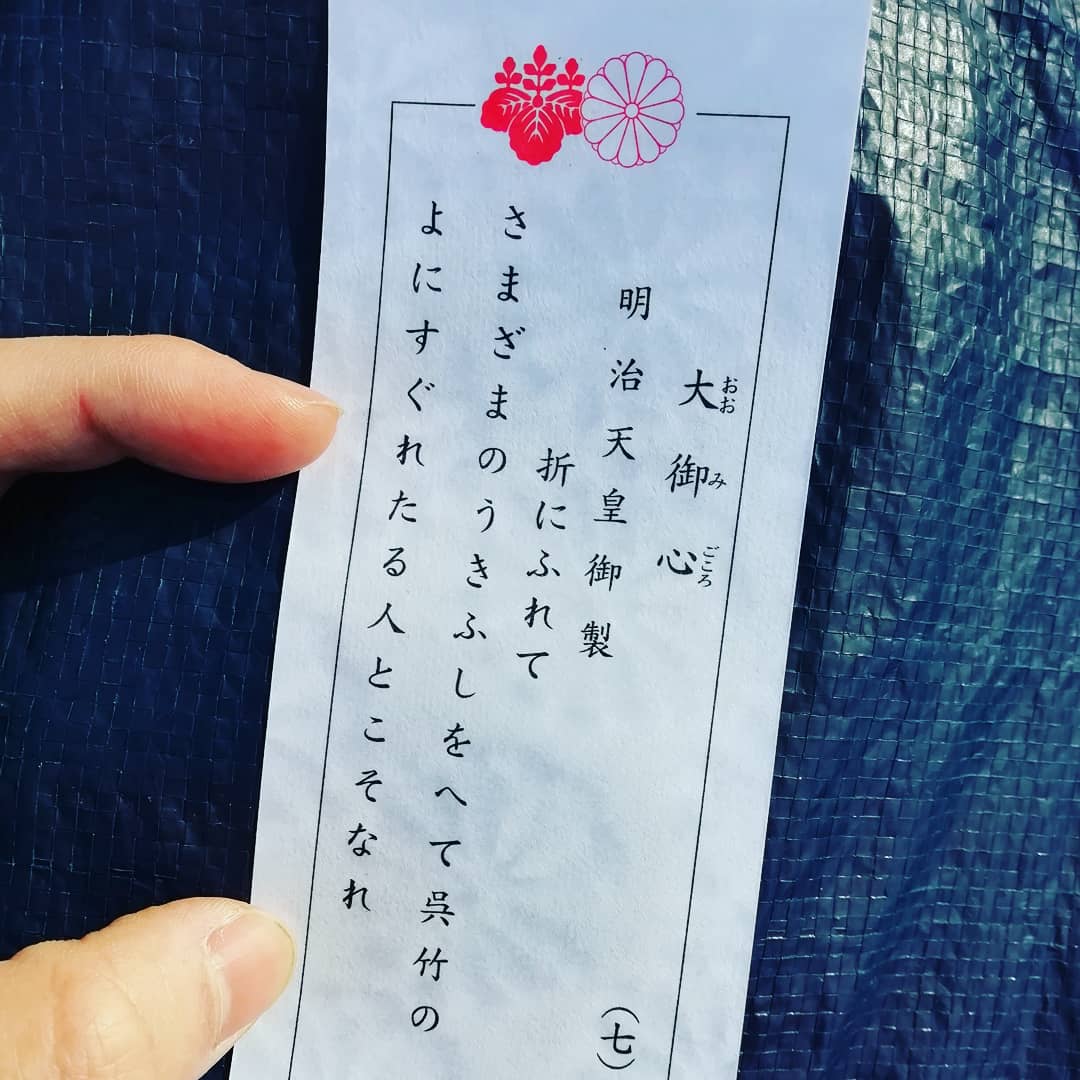 大御心
おおみごころ
明治天皇御製
折にふれて
さまざまのうきふしをへて呉竹の
よにすぐれたる人とこそなれ
(七)